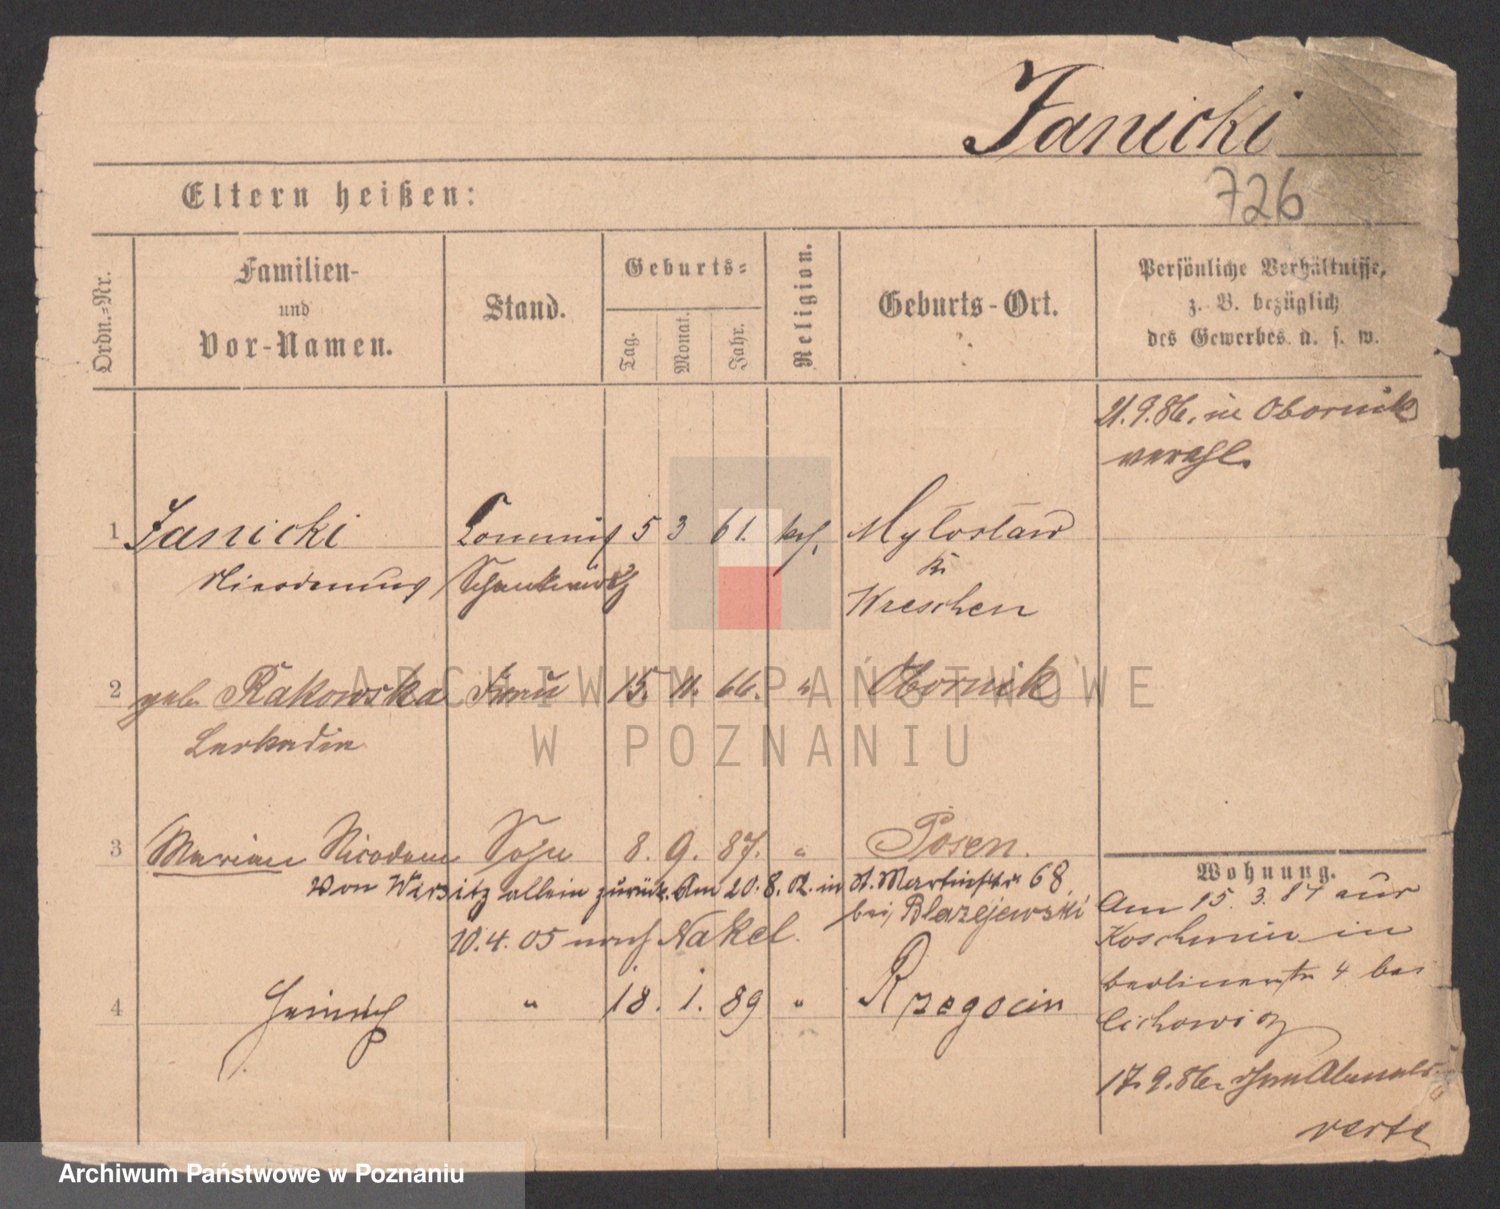 Janicki
726
Eltern heißen:
Ordn.-Nr.
Familien-
und
Vor-Namen.
Stand.
Geburts-
Tag.
Monat.
Jahr.
Religion.
Geburts-Ort.
Persönliche Verhältnisse,
z. B. bezüglich
des Gewerbes u. s. w.
21.9.86. in Obornik
verehl.
1 Janicki Commis 5 3 61. kth. Mylosław
Nicodemus Schankwirth Kr.
Wreschen
2 geb. Rakowska Frau 15. 11. 66. " Obornik
Leokadia
3 Marian Nicodem Sohn 8. 9. 87. " Posen.
Von Wirsitz allein zurück. Am 20.8.02. in St. Martinstr. 68
bei Blazejewski
10.4.05 nach Nakel.
4 Heinrich " 18. 1. 89 " Rzegocin
Wohnung.
Am 15.3.87 aus
Koschmin in
Berlinerstr 4 bei
Cichowicz
17.9.86.
verte
ARCHIWUM PAŃSTWOWE
W POZNANIU
Archiwum Państwowe w Poznaniu